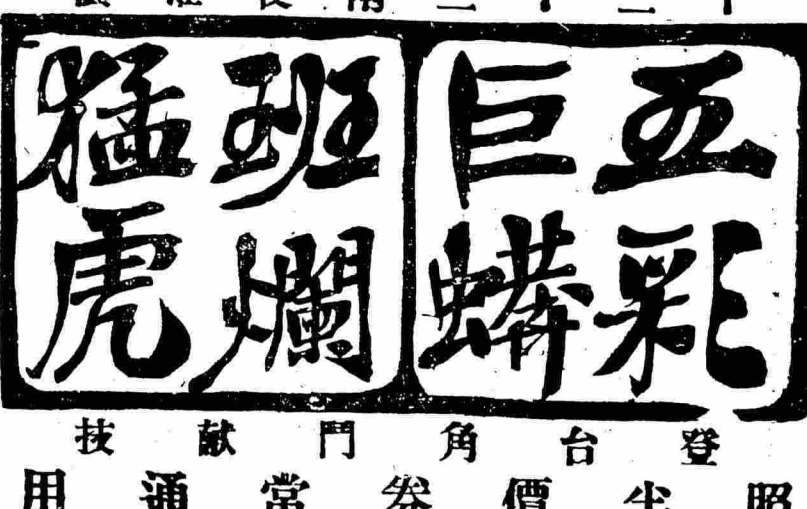 五彩
巨蟒
班爛
猛虎
登台角鬥献技
半價券常通用